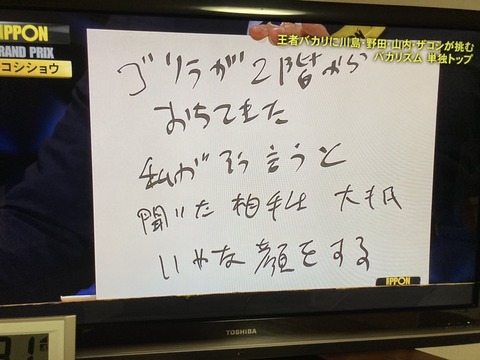 IPPON
GRAND PRIX
コシショウ
王者バカリに川島・野田・山内・ザコンが挑む
バカリズム 単独トップ
ゴリラが2階から
おちてきた
私がそう言うと
聞いた相手は 大抵
いやな顔をする
IPPON
TOSHIBA